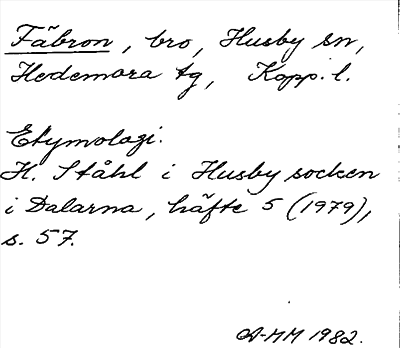 Fäbron, bro, Husby sn,
Hedemora tg, Kopp. l.
Etymologi.
H. Ståhl i Husby socken
i Dalarna, häfte 5 (1979),
s. 57.
A-MM 1982.